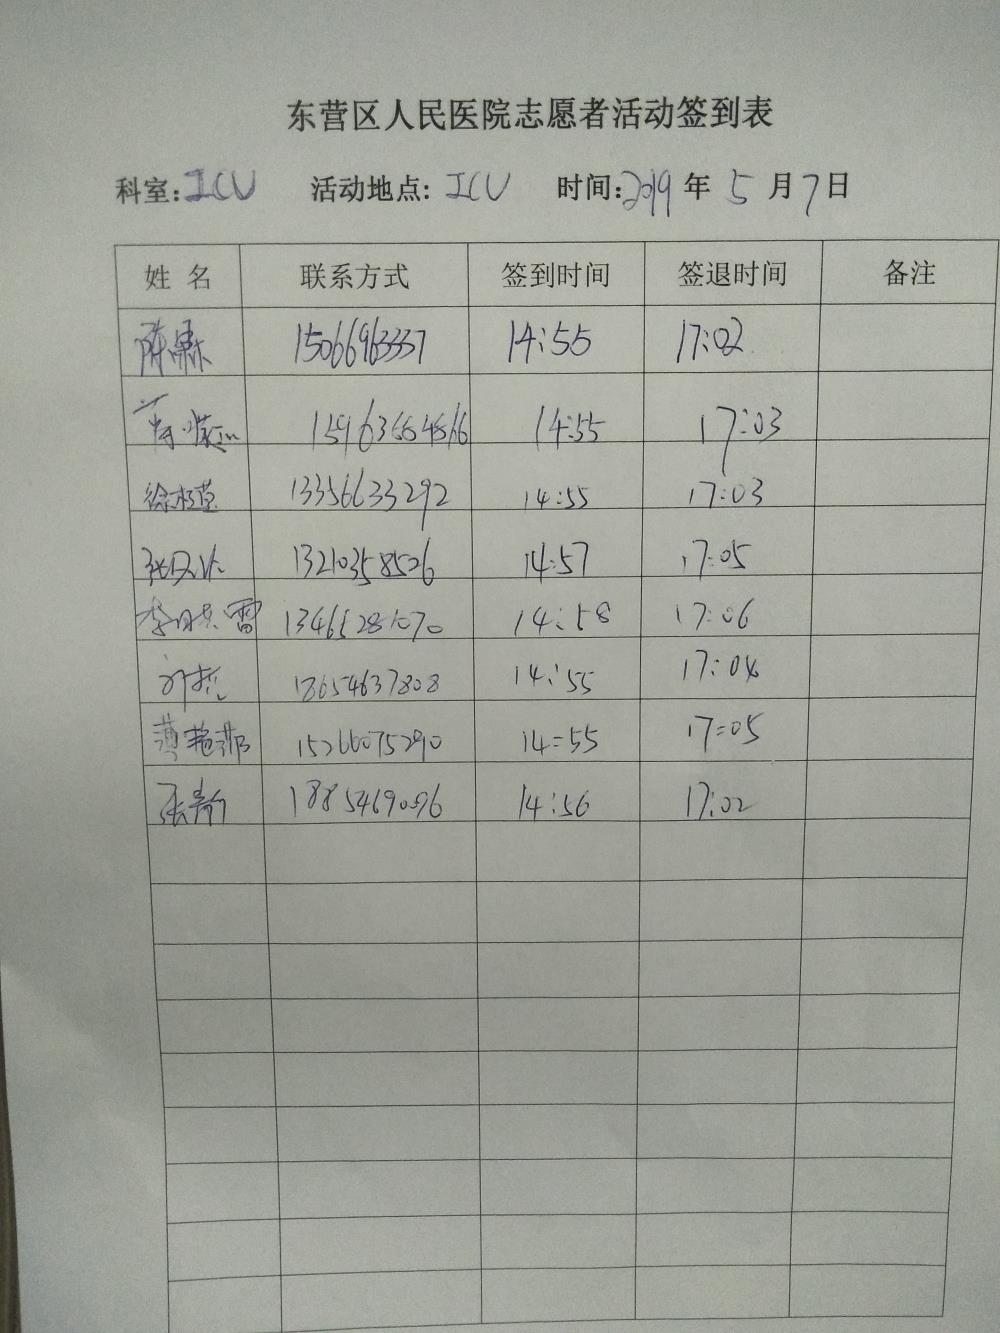 东营区人民医院志愿者活动签到表
科室:ICU 活动地点: ICU 时间:2019 年 5 月 7 日
姓 名 联系方式 签到时间 签退时间 备注
陈霖 15066963337 14:55 17:02
14:55 17:03
13356633292 14:55 17:03
13210358526 14:57 17:05
14:58 17:06
18654637808 14:55 17:04
薄艳菲 15266075290 14:55 17:05
张霄 14:56 17:02